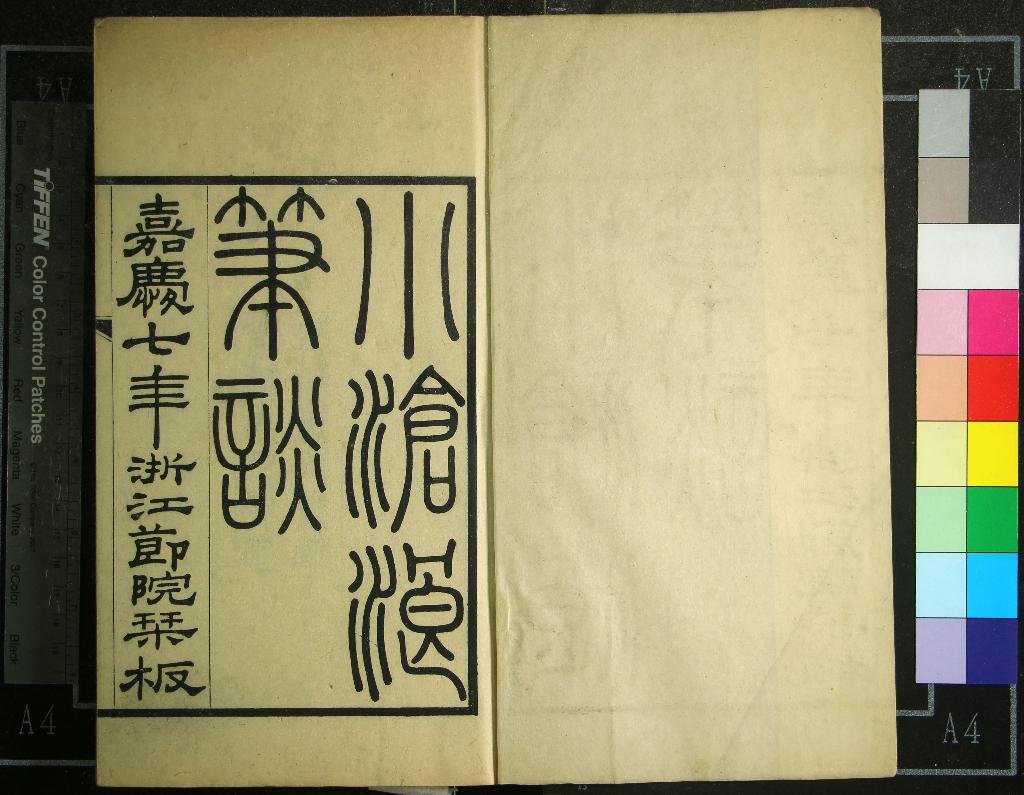 小滄浪
筆談
嘉慶七年 浙江節院栞板
TIFFEN Color Control Patches
Blue Cyan Green Yellow Red Magenta White 3/Color Black
A4
A4
A4
A4